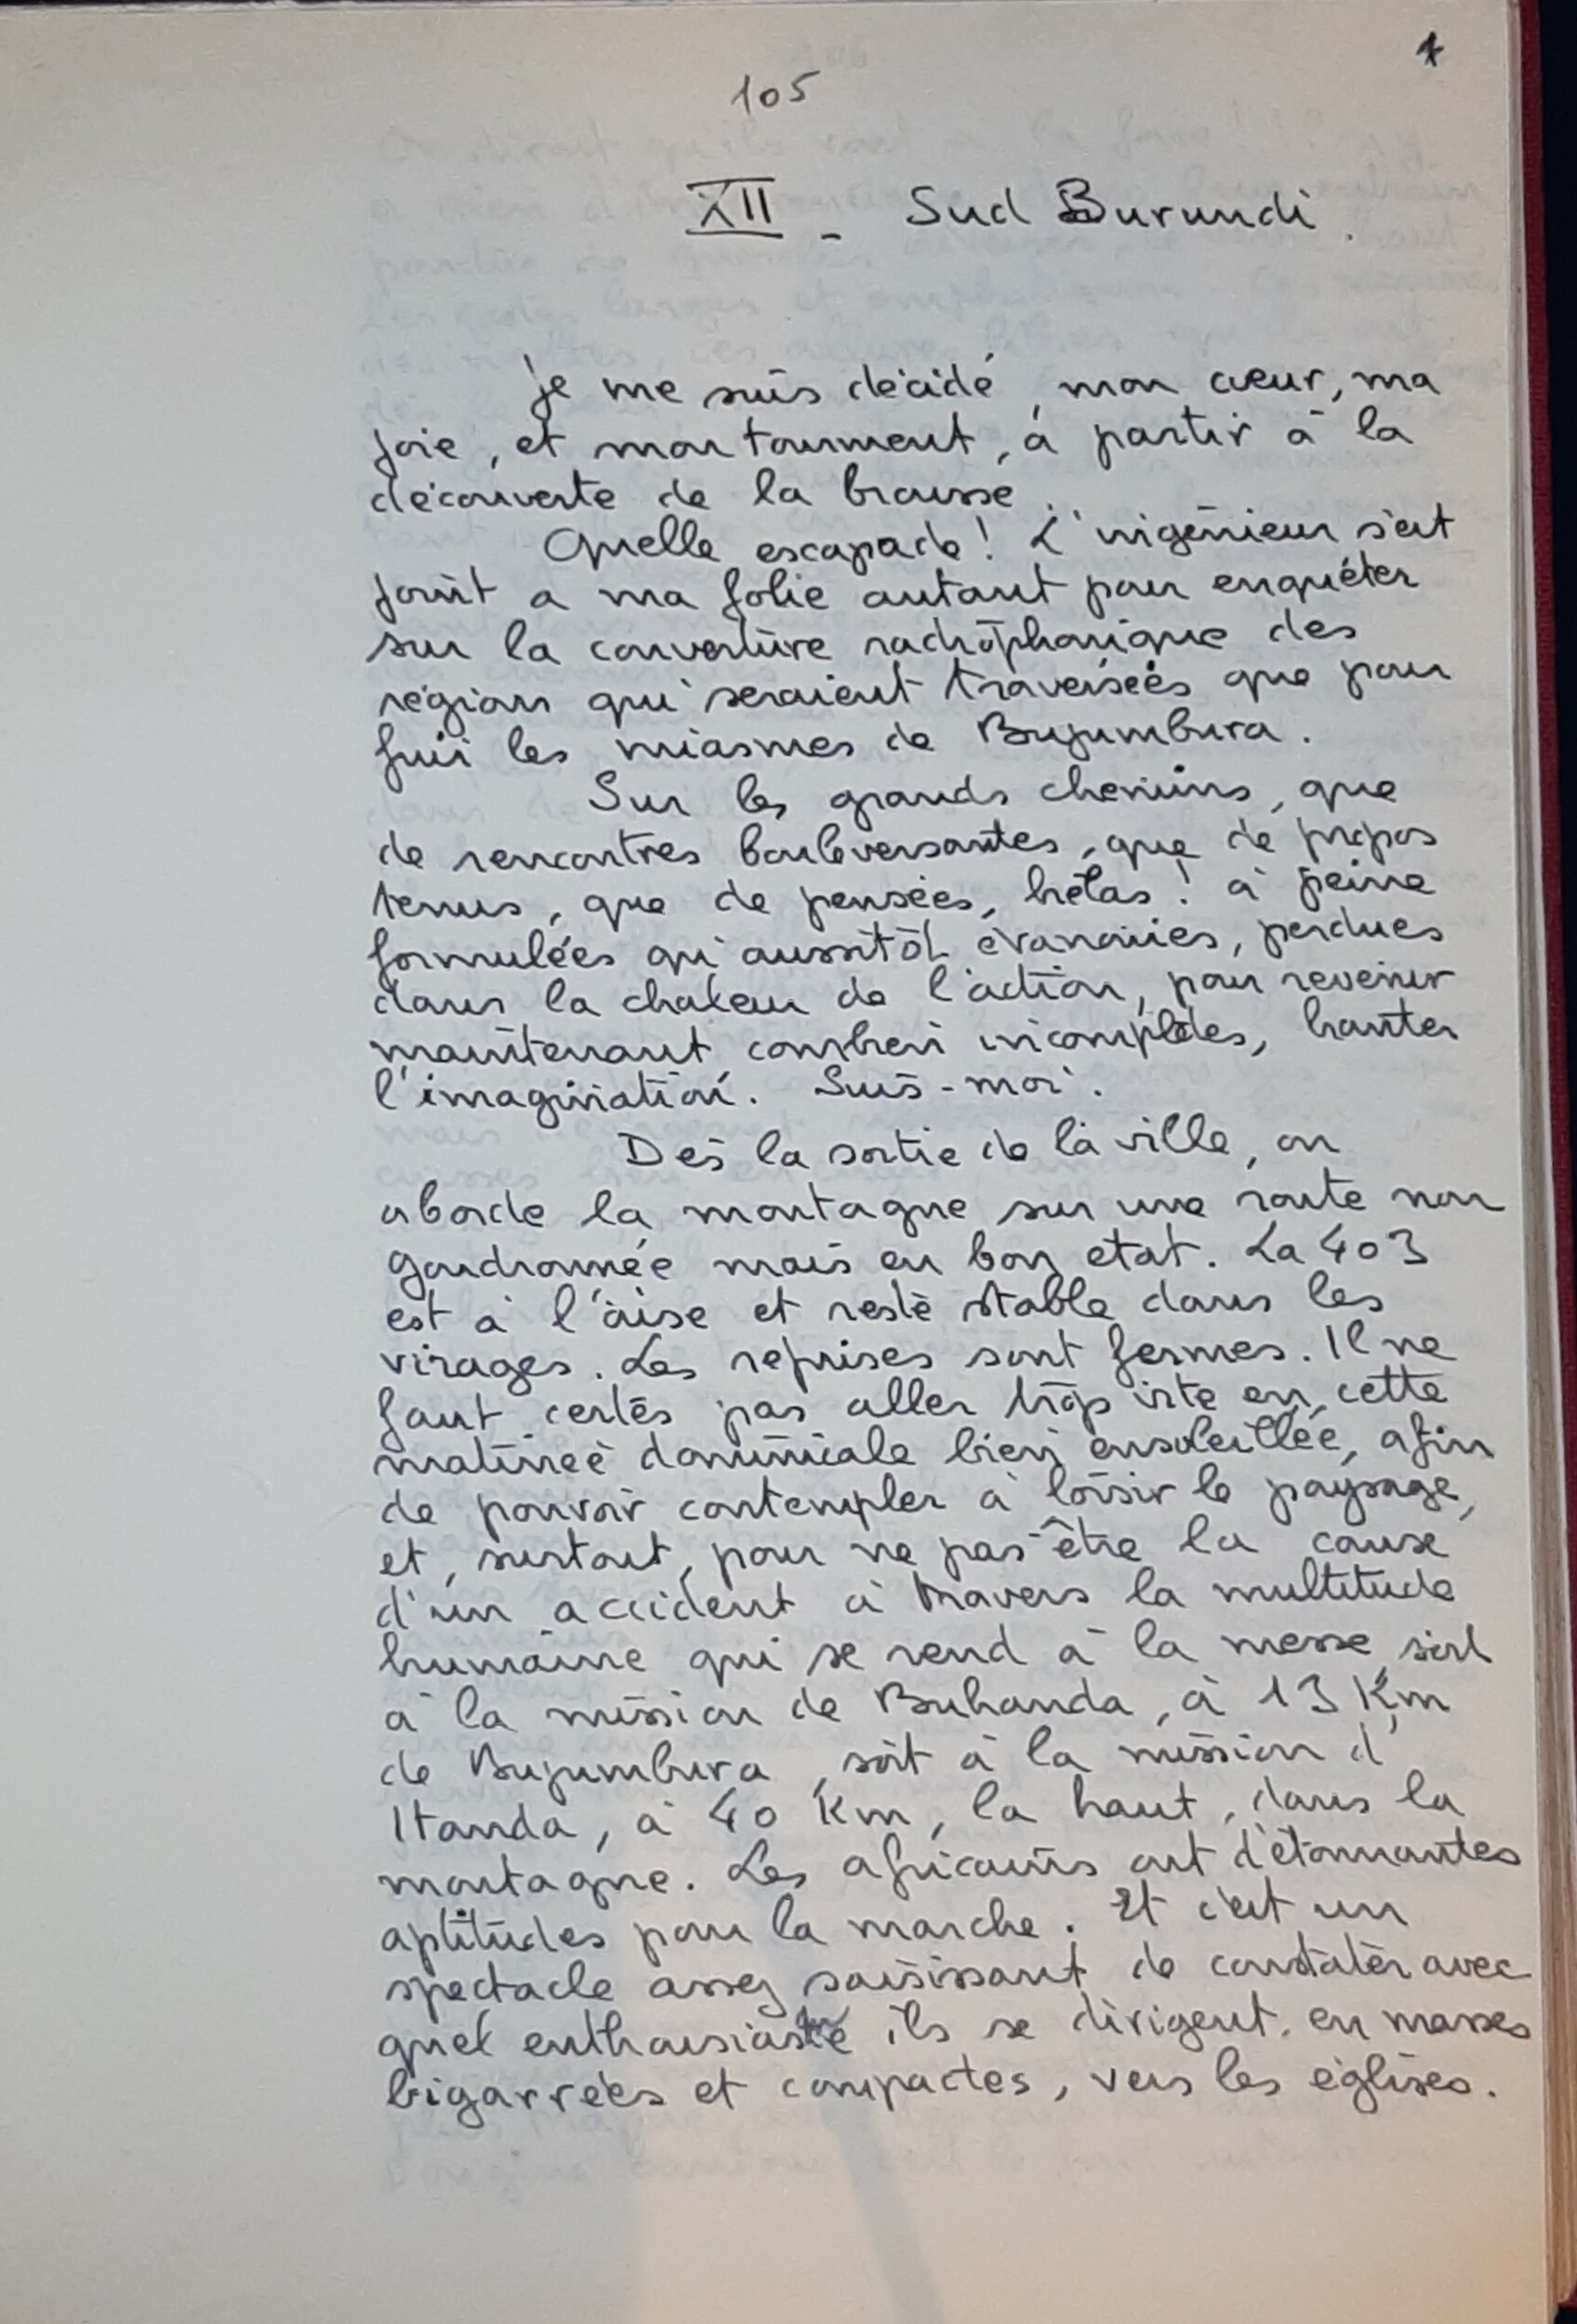 1
105
XII - Sud Burundi.
Je me suis décidé, mon cœur, ma
joie, et mon tourment, à partir à la
découverte de la brousse.
Quelle escapade ! L'ingénieur s'est
joint a ma folie autant pour enquêter
sur la couverture radiophonique des
régions qui seraient traversées que pour
fuir les miasmes de Bujumbura.
Sur les grands chemins, que
de rencontres bouleversantes, que de propos
tenus, que de pensées, hélas ! à peine
formulées qu'aussitôt évanouies, perdues
dans la chaleur de l'action, pour revenir
maintenant, combien incomplètes, hanter
l'imagination. Suis-moi.
Dès la sortie de la ville, on
aborde la montagne sur une route non
goudronnée mais en bon etat. La 403
est à l'aise et reste stable dans les
virages. Les reprises sont fermes. Il ne
faut certes pas aller trop vite en cette
matinée dominicale bien ensoleillée, afin
de pouvoir contempler à loisir le paysage,
et, surtout, pour ne pas être la cause
d'un accident à travers la multitude
humaine qui se rend à la messe soit
à la mission de Buhanda, à 13 Km
de Bujumbura, soit à la mission d'
Itanda, à 40 Km, la haut, dans la
montagne. Les africains ont d'étonnantes
aptitudes pour la marche. Et c'est un
spectacle assez saisissant de constater avec
quel enthousiasme ils se dirigent, en masses
bigarrées et compactes, vers les églises.